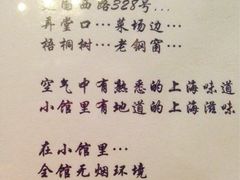 西路328号...
弄堂口...菜场边...
梧桐树...老钢窗...
空气中有熟悉的上海味道
小馆里有地道的上海滋味
在小馆里...
全馆无烟环境